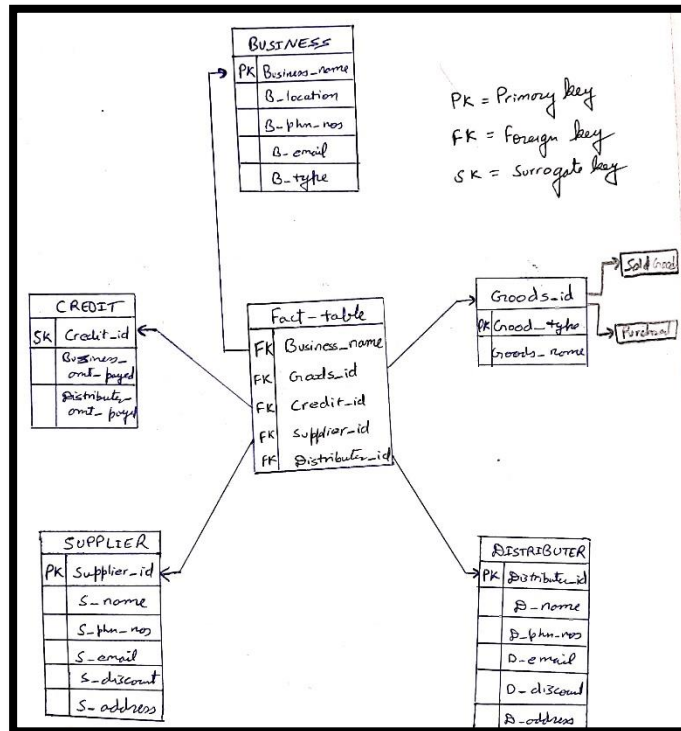 BUSINESS
PK Business_name
B_location
B_phn_nos
B_email
B_type
PK = Primary key
FK = Foreign key
SK = Surrogate key
CREDIT
SK Credit_id
Business_
amt_payed
Distributer_
amt_payed
Fact_table
FK Business_name
FK Goods_id
FK Credit_id
FK Supplier_id
FK Distributer_id
Goods_id
PK Good_type
Goods_name
Sold Good
Purchased
SUPPLIER
PK Supplier_id
S_name
S_phn_nos
S_email
S_discount
S_address
DISTRIBUTER
PK Distributer_id
D_name
D_phn_nos
D_email
D_discount
D_address